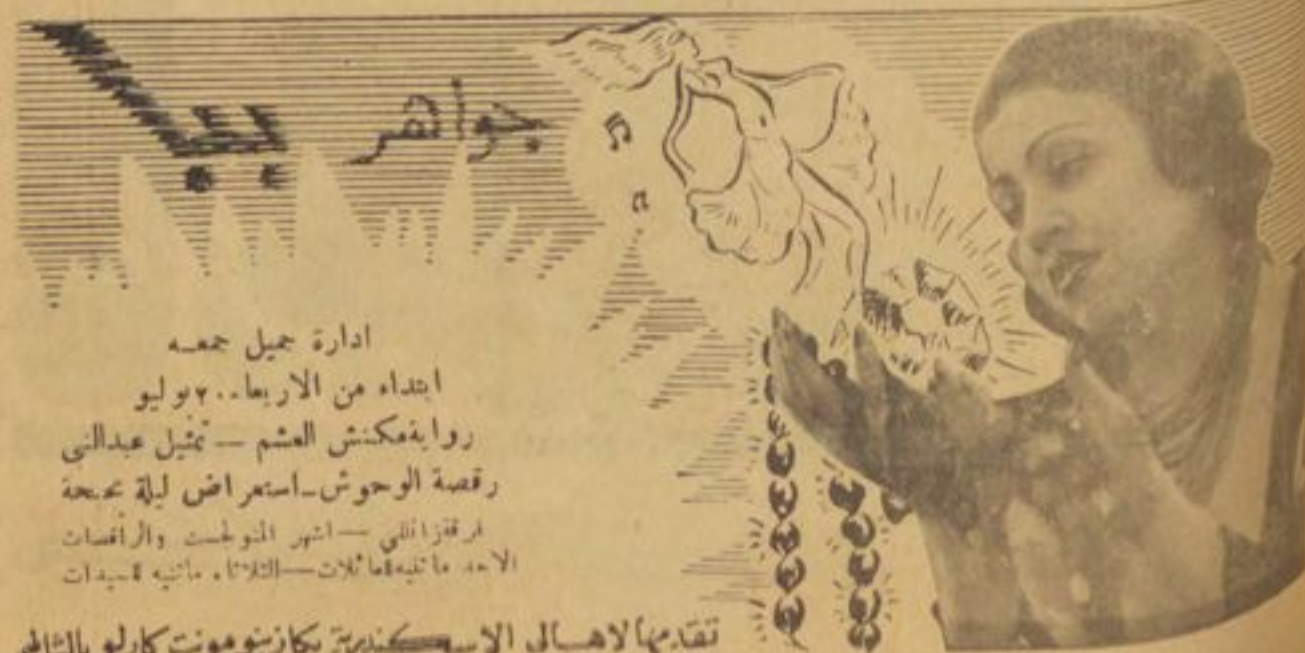 جواهر ببا
ادارة جميل جمعه
ابتداء من الاربعاء ٢٠ يوليو
رواية مكنش العشم — تمثيل عبدالنبى
رقصة الوحوش — استعراض ليلة بحبحة
فرقة — اشهر المنولجست والراقصات
الاحد ماتنيه للعائلات — الثلاثاء ماتنيه للسيدات
تقدمها لاهالى الاسكندرية بكازينو مونت كارلو بالشاطبى